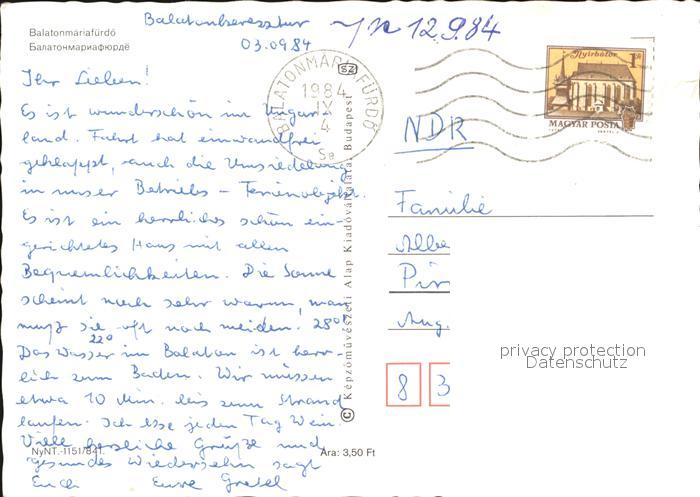 Balatonmáriafürdő
Балатонмариафюрдё
Balatonberesztur
03.09.84
12.9.84
Ihr Lieben!
Es ist wunderschön im Ungar-
land. Fahrt hat einwandfrei
geklappt, auch die Umsiedelung
in unser Betriebs-Ferienobjekt.
Es ist ein herrliches schön ein-
gerichtetes Haus mit allen
Bequemlichkeiten. Die Sonne
scheint noch sehr warm, man
muß sie oft noch meiden. 28°
22°
Das Wasser im Balaton ist herr-
lich zum Baden. Wir müssen
etwa 10 Min. bis zum Strand
laufen. Ich esse jeden Tag Wein.
Viele herzliche Grüße und
gesundes Wiedersehn sagt
Euch Eure Gretel
NyNT.-1151/841.
Ára: 3,50 Ft
© Képzőművészeti Alap Kiadóvállalata, Budapest
BALATONMÁRIAFÜRDŐ
1984
IX
4
SZ
Nyírbátor
1Ft
MAGYAR POSTA
NDR
Familie
Albe
Pir
Aug.
8 3
privacy protection
Datenschutz